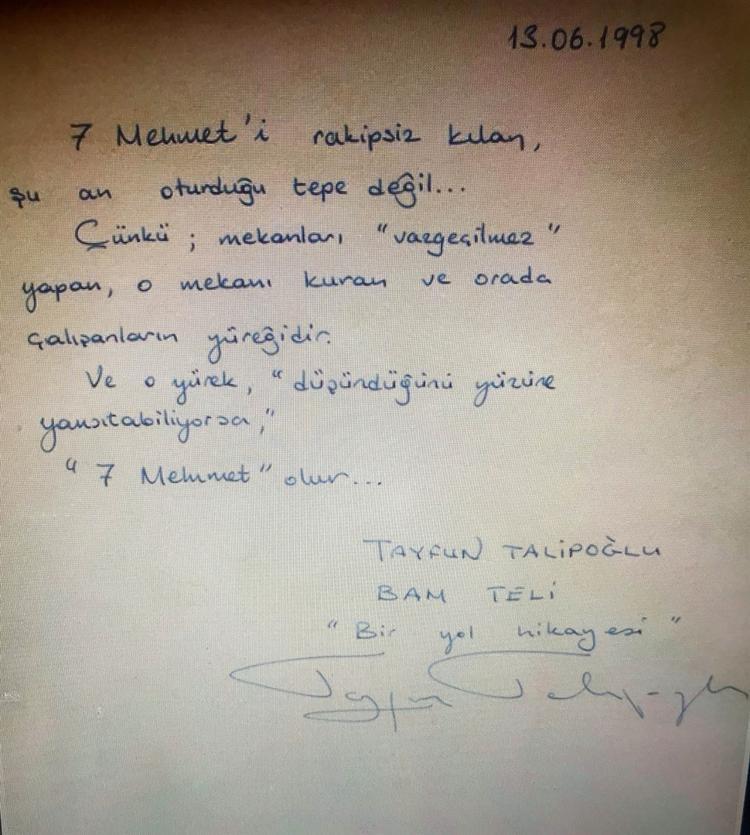 13.06.1998
7 Mehmet'i rakipsiz kılan,
şu an oturduğu tepe değil...
Çünkü ; mekanları "vazgeçilmez"
yapan, o mekanı kuran ve orada
çalışanların yüreğidir.
Ve o yürek, "düşündüğünü yüzüne
yansıtabiliyorsa,"
"7 Mehmet" olur...
TAYFUN TALİPOĞLU
BAM TELİ
"Bir yol hikayesi"